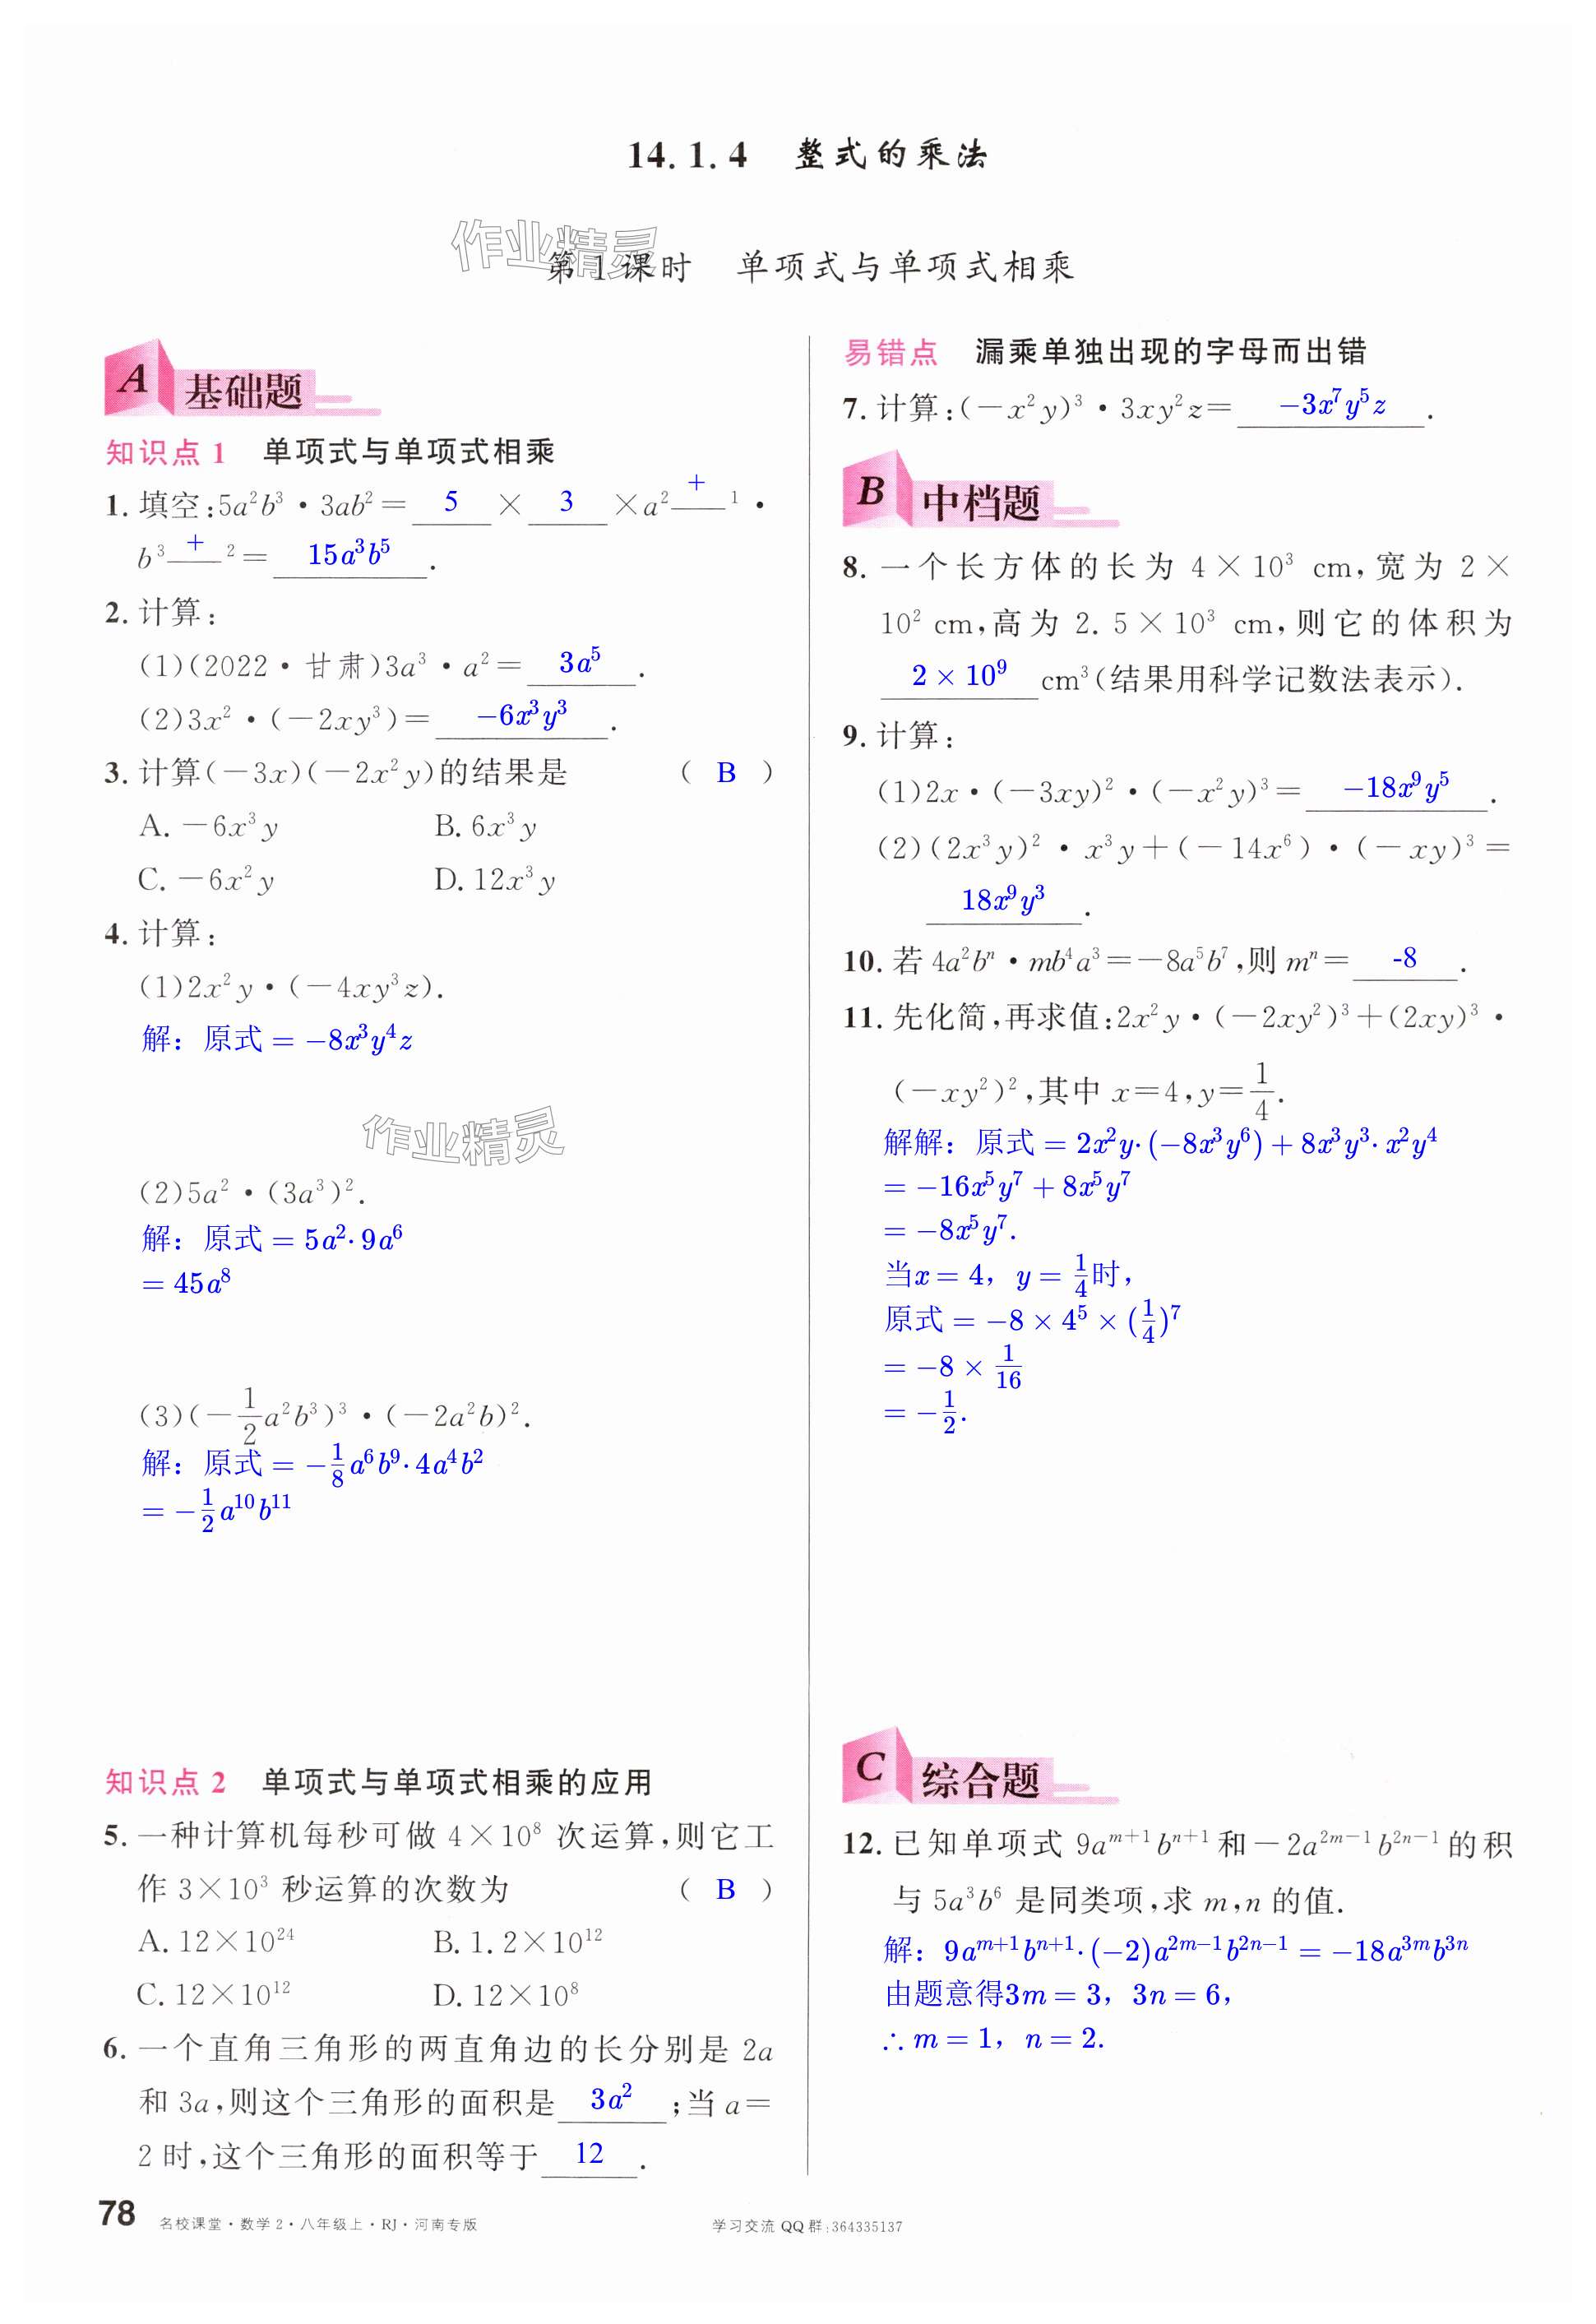 14.1.4 整式的乘法
作业精灵
第1课时 单项式与单项式相乘
A 基础题
知识点1 单项式与单项式相乘
1. 填空:5a²b³·3ab²= 5 × 3 ×a² + ¹·
b³ + ²= 15a³b⁵ .
2. 计算:
(1)(2022·甘肃)3a³·a²= 3a⁵ .
(2)3x²·(-2xy³)= -6x³y³ .
3. 计算(-3x)(-2x²y)的结果是 ( B )
A. -6x³y B. 6x³y
C. -6x²y D. 12x³y
4. 计算:
(1)2x²y·(-4xy³z).
解:原式= -8x³y⁴z
作业精灵
(2)5a²·(3a³)².
解:原式= 5a²·9a⁶
= 45a⁸
(3)(-1/2a²b³)³·(-2a²b)².
解:原式= -1/8a⁶b⁹·4a⁴b²
= -1/2a¹⁰b¹¹
知识点2 单项式与单项式相乘的应用
5. 一种计算机每秒可做 4×10⁸ 次运算,则它工
作 3×10³ 秒运算的次数为 ( B )
A. 12×10²⁴ B. 1.2×10¹²
C. 12×10¹² D. 12×10⁸
6. 一个直角三角形的两直角边的长分别是 2a
和 3a,则这个三角形的面积是 3a² ;当 a=
2 时,这个三角形的面积等于 12 .
易错点 漏乘单独出现的字母而出错
7. 计算:(-x²y)³·3xy²z= -3x⁷y⁵z .
B 中档题
8. 一个长方体的长为 4×10³ cm,宽为 2×
10² cm,高为 2.5×10³ cm,则它的体积为
2 × 10⁹ cm³(结果用科学记数法表示).
9. 计算:
(1)2x·(-3xy)²·(-x²y)³= -18x⁹y⁵ .
(2)(2x³y)²·x³y+(-14x⁶)·(-xy)³=
18x⁹y³ .
10. 若 4a²bⁿ·mb⁴a³=-8a⁵b⁷,则 mⁿ= -8 .
11. 先化简,再求值:2x²y·(-2xy²)³+(2xy)³·
(-xy²)²,其中 x=4,y=1/4.
解解:原式= 2x²y·(-8x³y⁶) + 8x³y³·x²y⁴
= -16x⁵y⁷ + 8x⁵y⁷
= -8x⁵y⁷.
当x = 4,y = 1/4时,
原式= -8 × 4⁵ × (1/4)⁷
= -8 × 1/16
= -1/2.
C 综合题
12. 已知单项式 9aᵐ⁺¹bⁿ⁺¹和-2a²ᵐ⁻¹b²ⁿ⁻¹的积
与 5a³b⁶ 是同类项,求 m,n 的值.
解:9aᵐ⁺¹bⁿ⁺¹·(-2)a²ᵐ⁻¹b²ⁿ⁻¹ = -18a³ᵐb³ⁿ
由题意得3m = 3,3n = 6,
∴ m = 1,n = 2.
78 名校课堂·数学2·八年级上·RJ·河南专版 学习交流QQ群:364335137